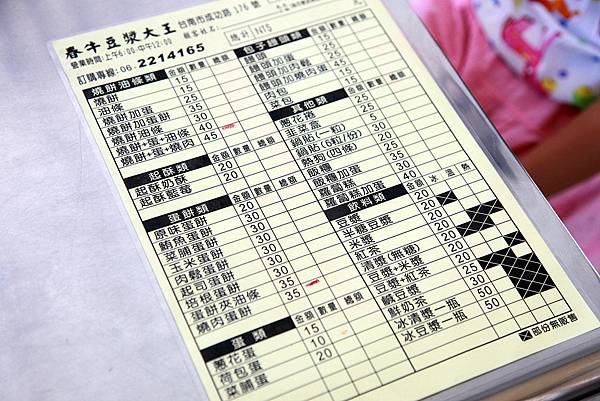 春牛豆漿大王 台南市成功路176號
營業時間:上午6:00-中午12:00
訂購專線:06-2214165
總計:NT$ 元
燒餅油條類 金額 數量 總額
燒餅 15
油條 15
燒餅加蛋 25
燒餅加蔥蛋 35
燒餅油條 30
燒餅+蛋+油條 40
燒餅+蛋+燒肉 45
起酥類 金額 數量 總額
起酥奶酥 20
起酥藍莓 20
蛋餅類 金額 數量 總額
原味蛋餅 20
鮪魚蛋餅 30
菜脯蛋餅 30
玉米蛋餅 30
肉鬆蛋餅 30
起司蛋餅 30
培根蛋餅 30
蛋餅夾油條 35
燒肉蛋餅 35
蛋類 金額 數量 總額
蔥花蛋 15
荷包蛋 10
菜脯蛋 20
包子饅頭類 金額 數量 總額
饅頭
饅頭加蛋
饅頭加肉鬆
饅頭加燒肉蛋
肉包 15
菜包 15
其他類 金額 數量 總額
蔥花捲
韭菜盒 25
鍋貼(一粒) 5
鍋貼(6粒/份) 30
熱狗(四條)
飯糰
飯糰加蛋
蘿蔔糕
蘿蔔糕加蛋
飲料類 金額 冰 溫 熱
豆漿
米糖豆漿 20
米漿 20
紅茶
清漿(無糖)
豆漿+米漿 20
豆漿+紅茶 20
鹹豆漿
鮮奶茶
冰清漿一瓶 50
冰豆漿一瓶 50
部份無販售